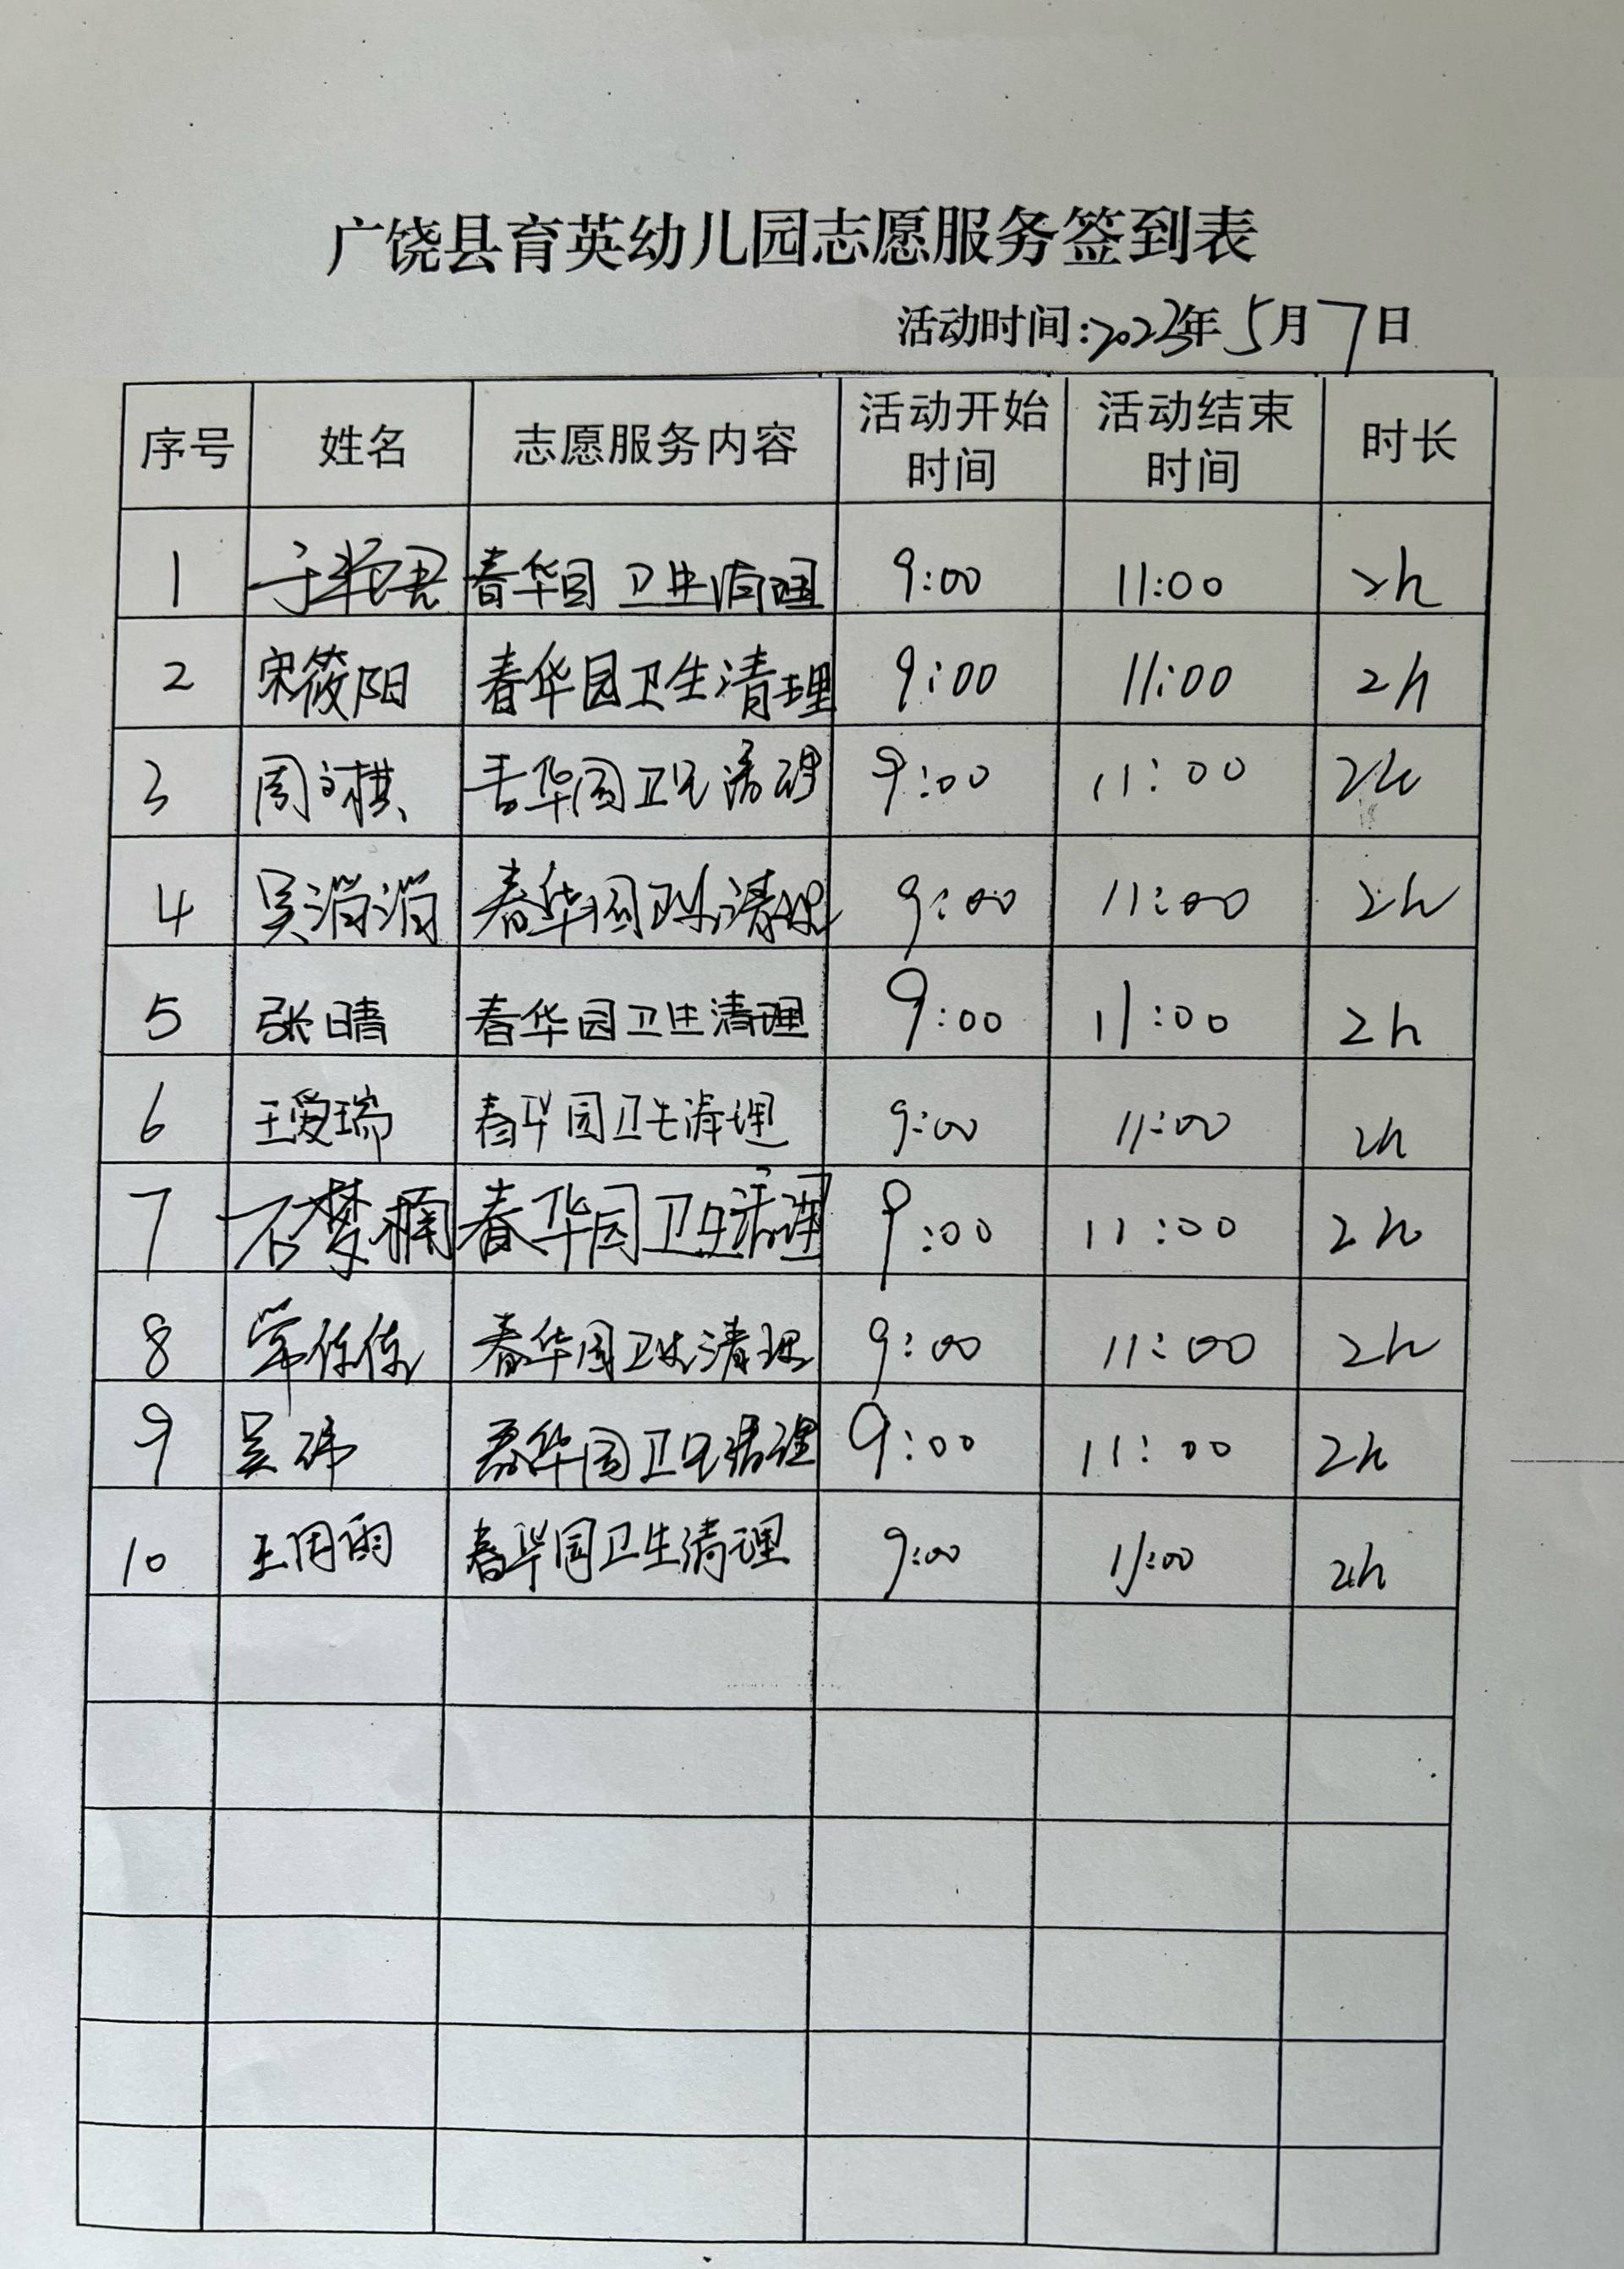 广饶县育英幼儿园志愿服务签到表
活动时间:2023年5月7日
序号 姓名 志愿服务内容 活动开始时间 活动结束时间 时长
1 春华园卫生清理 9:00 11:00 2h
2 宋筱阳 春华园卫生清理 9:00 11:00 2h
3 周文棋 春华园卫生清理 9:00 11:00 2h
4 吴涓涓 春华园卫生清理 9:00 11:00 2h
5 张晴 春华园卫生清理 9:00 11:00 2h
6 王爱瑞 春华园卫生清理 9:00 11:00 2h
7 石梦楠 春华园卫生清理 9:00 11:00 2h
8 春华园卫生清理 9:00 11:00 2h
9 吴 春华园卫生清理 9:00 11:00 2h
10 春华园卫生清理 9:00 11:00 2h